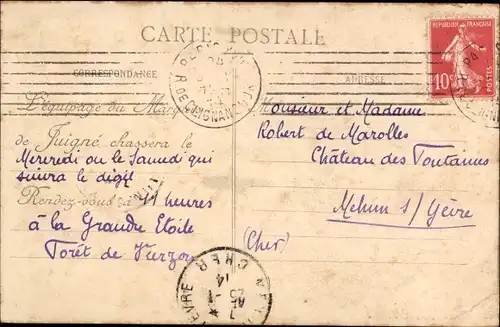 CARTE POSTALE
CORRESPONDANCE
ADRESSE
REPUBLIQUE FRANÇAISE
10
POSTES
L'équipage du Marquis
de Juigné chassera le
Mercredi ou le Samedi qui
suivra le dégel
Rendez-vous à 11 heures
à la Grande Etoile
Forêt de Vierzon
Monsieur et Madame
Robert de Marolles
Château des Fontaines
Mehun s/ Yèvre
(Cher)
CHER
14